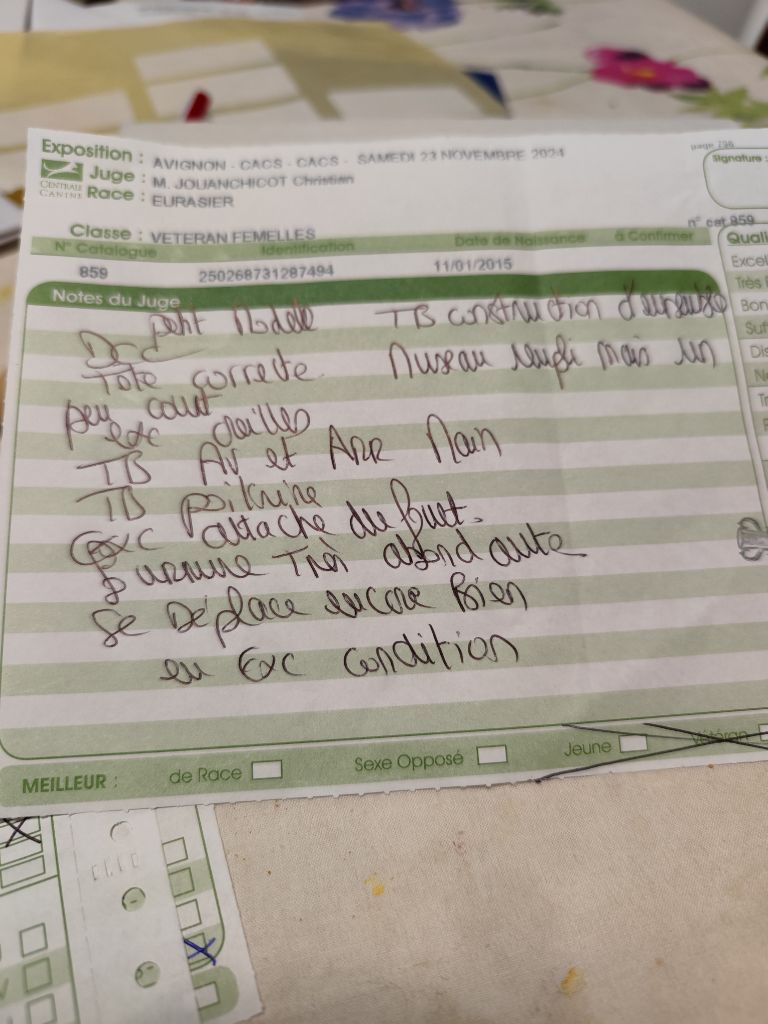 page 798
Exposition : AVIGNON - CACS - CACS - SAMEDI 23 NOVEMBRE 2024
Signature :
CENTRALE CANINE
Juge : M. JOUANCHICOT Christian
Race : EURASIER
n° cat 859
Classe : VETERAN FEMELLES
N° Catalogue Identification Date de Naissance à Confirmer
859 250268731287494 11/01/2015
Quali
Excel
Très B
Bon
Suf
Dis
Notes du Juge
petit Modèle TB construction d'ensemble
Tete correcte Museau rempli mais un
peu court
exc oreilles
TB AV et ARR Main
TB poitrine
exc attache du fouet.
Fourrure Très abondante
Se Déplace encore Bien
en Exc Condition
MEILLEUR : de Race Sexe Opposé Jeune Vétéran